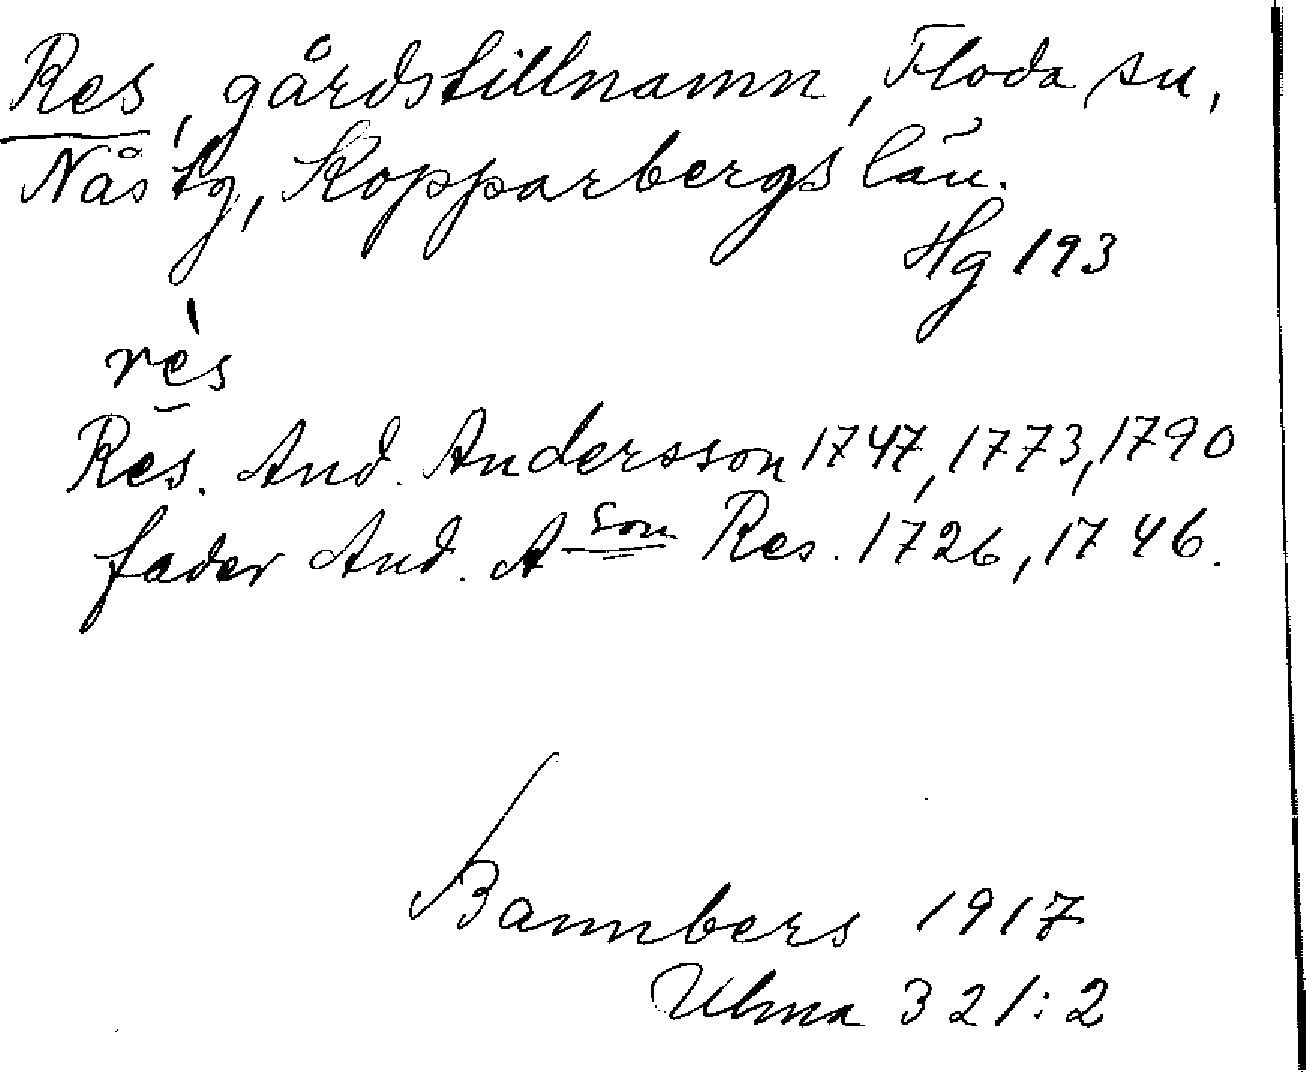 Res, gårdstillnamn, Floda sn,
Nås tg, Kopparbergs län.
Hg 193
rès
Res. And. Andersson 1747, 1773, 1790
fader And. Ason Res. 1726, 1746.
Bannbers 1917
Ulma 321:2